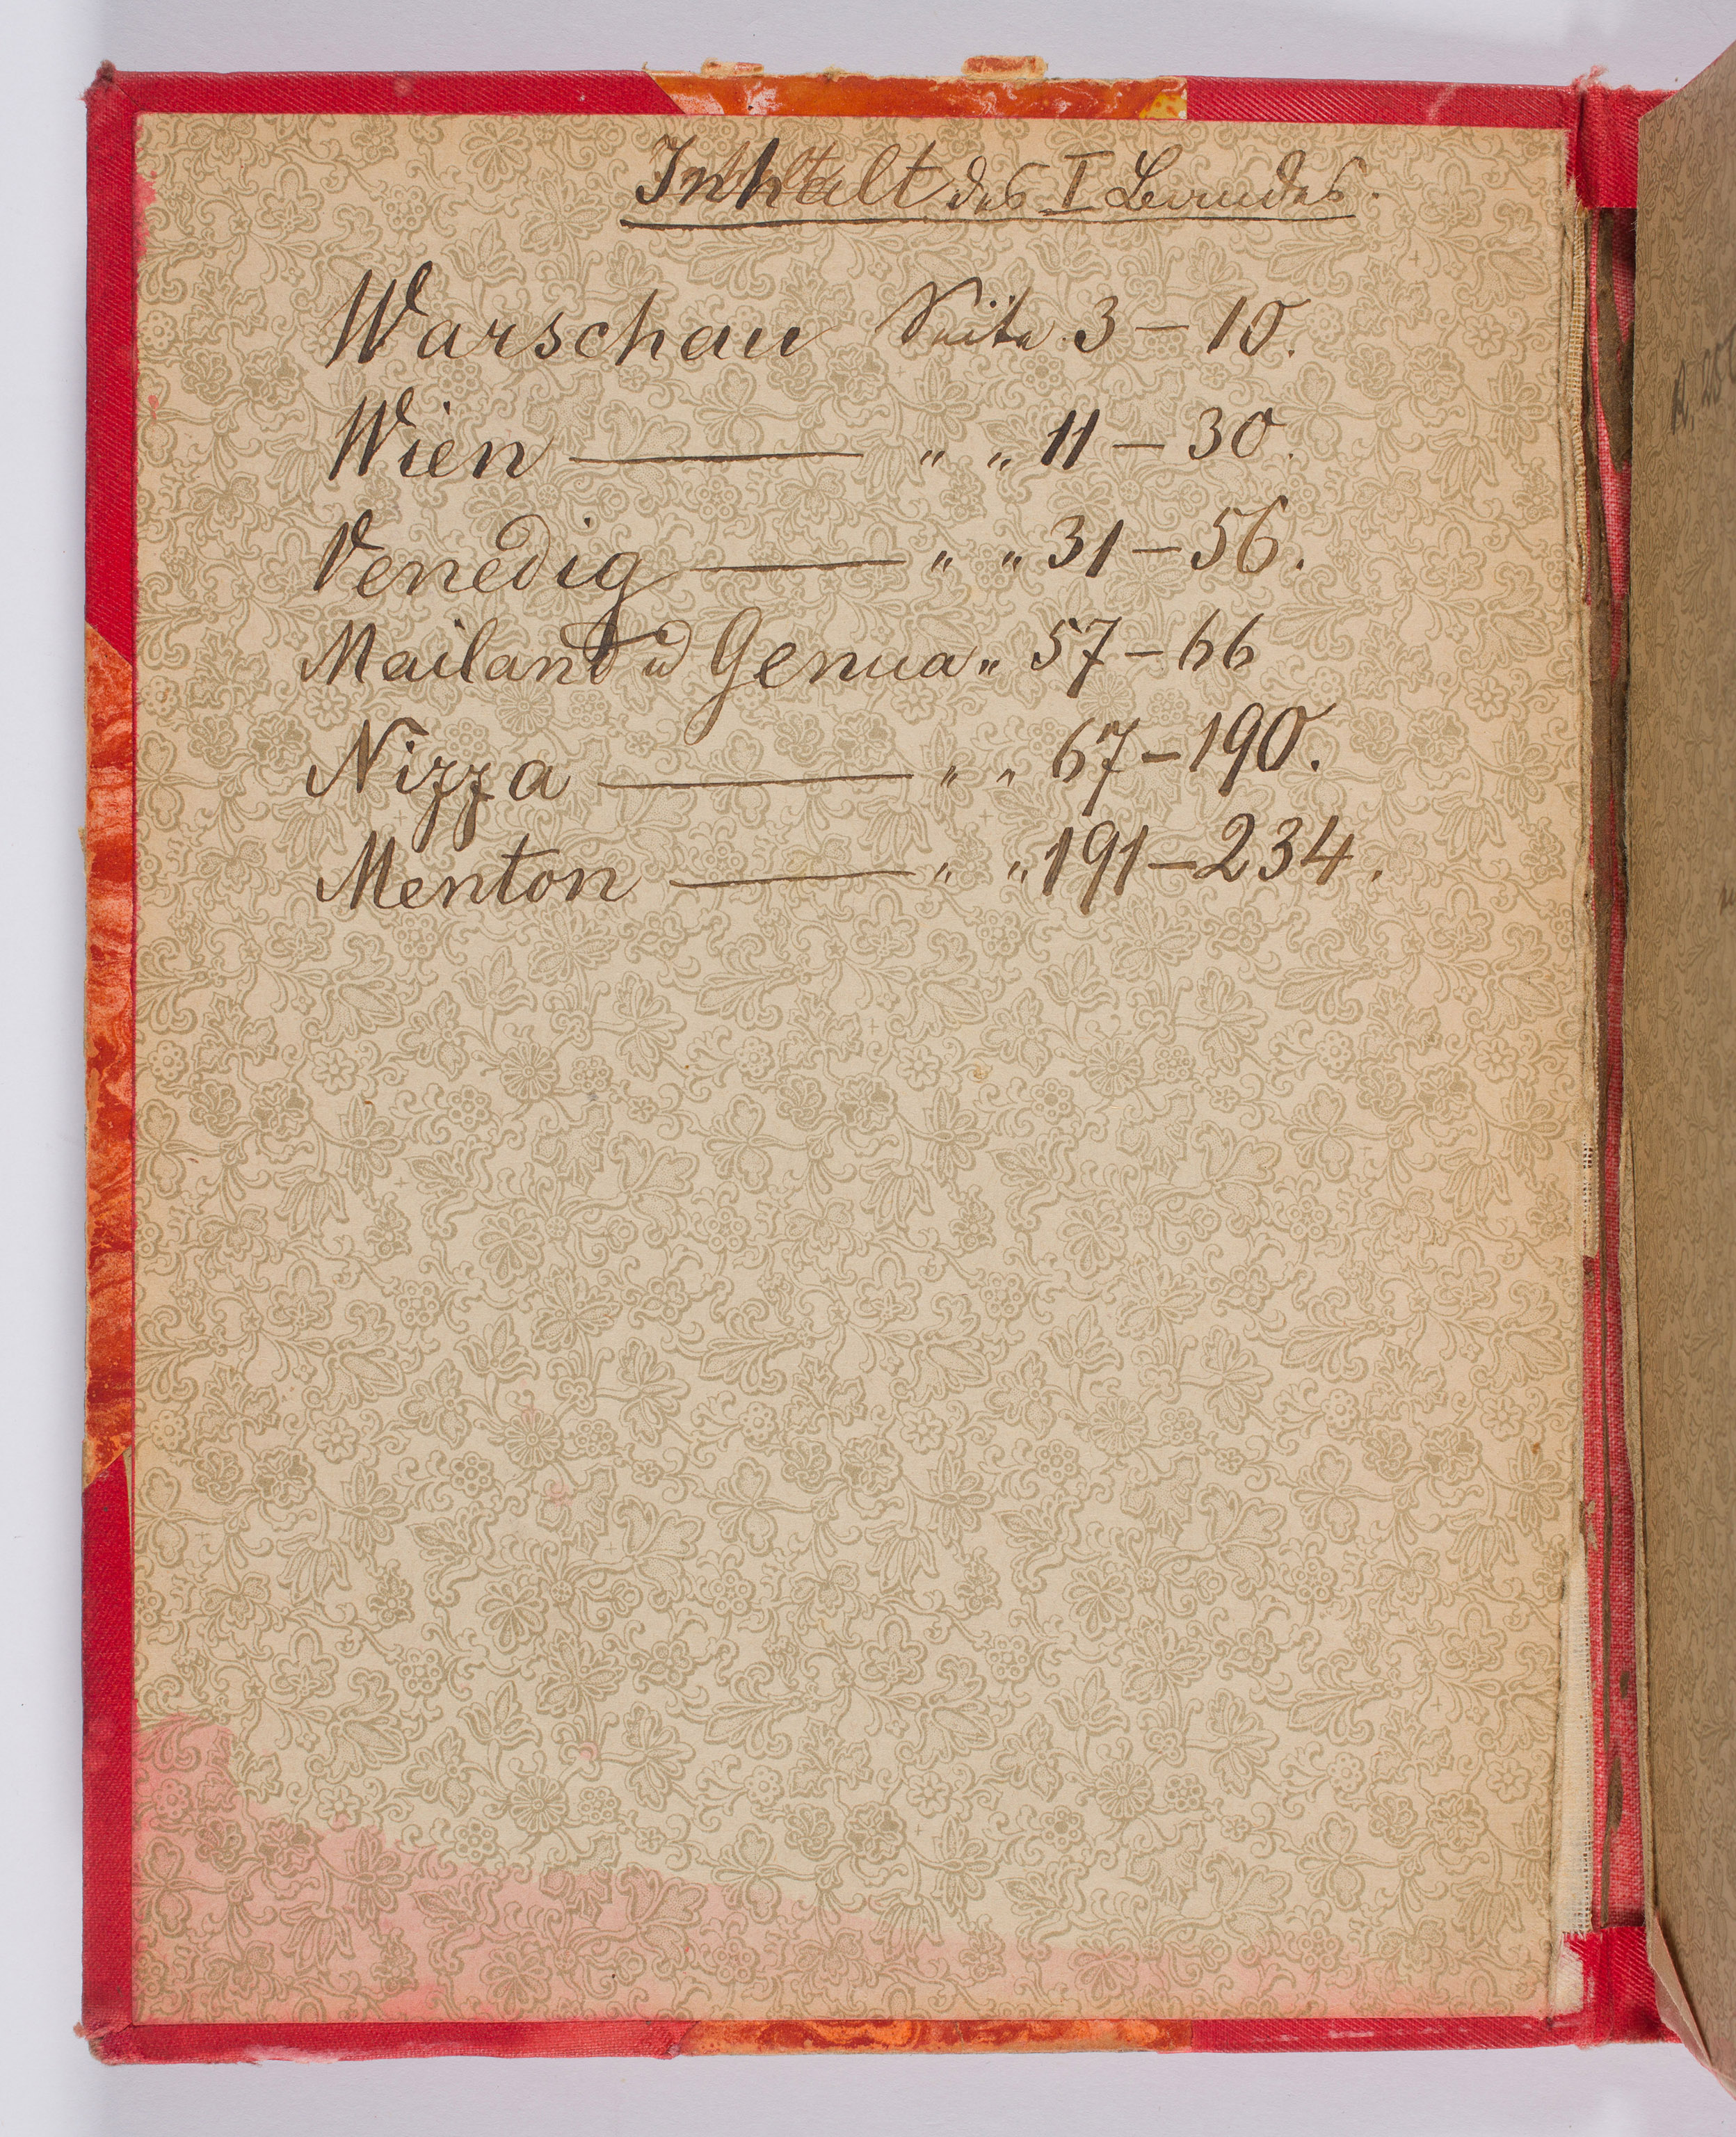 Inhalt des I Bandes.
Warschau Seite 3 – 10.
Wien — " " 11 – 30.
Venedig — " " 31 – 56.
Mailand u Genua " 57 – 66
Nizza — " " 67 – 190.
Menton — " " 191 – 234.